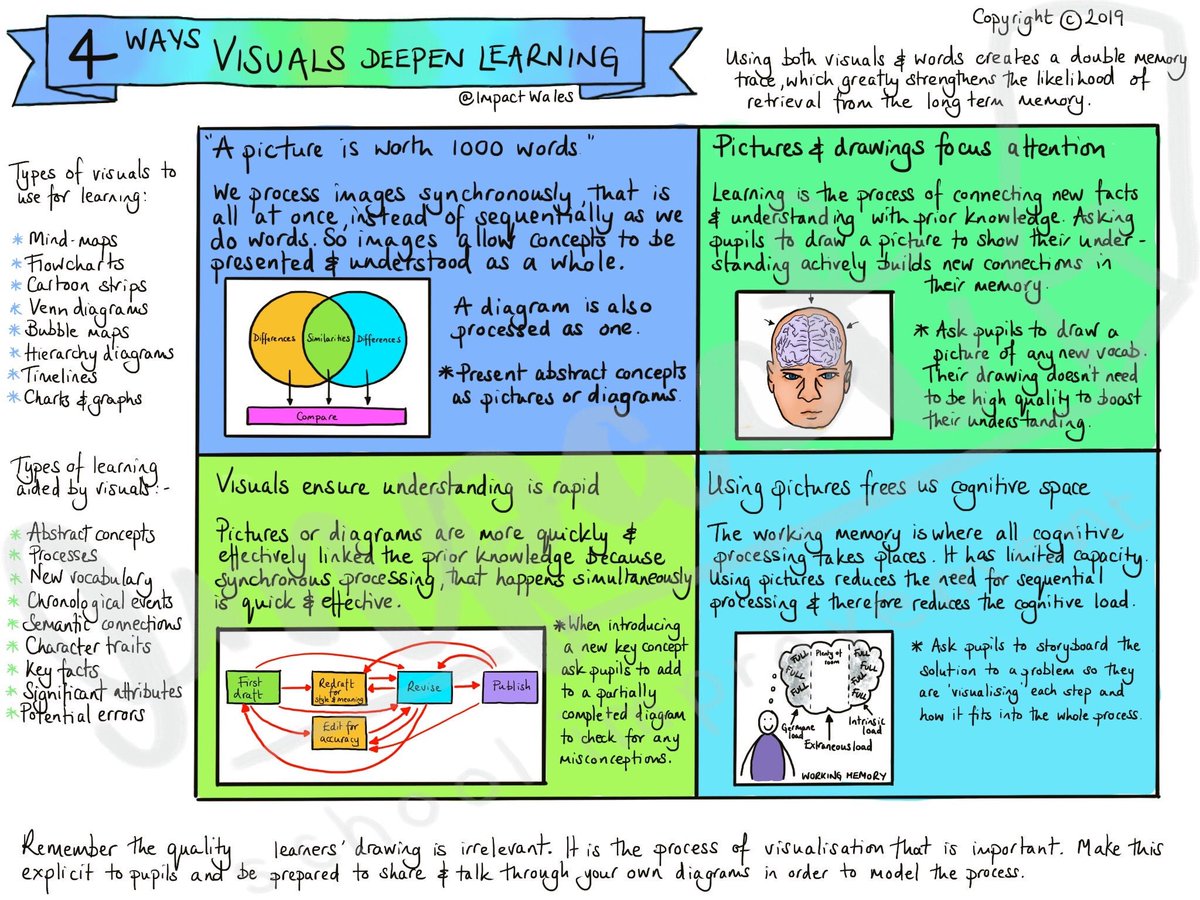 4 WAYS VISUALS DEEPEN LEARNING
@ImpactWales
Copyright © 2019
Using both visuals & words creates a double memory
trace, which greatly strengthens the likelihood of
retrieval from the long term memory.
Types of visuals to
use for learning:
* Mind-maps
* Flowcharts
* Cartoon strips
* Venn diagrams
* Bubble maps
* Hierarchy diagrams
* Timelines
* Charts & graphs
Types of learning
aided by visuals:-
* Abstract concepts
* Processes
* New vocabulary
* Chronological events
* Semantic connections
* Character traits
* Key facts
* Significant attributes
* Potential errors
"A picture is worth 1000 words"
We process images synchronously, that is
all at once, instead of sequentially as we
do words. So, images allow concepts to be
presented & understood as a whole.
Differences
Similarities
Differences
Compare
A diagram is also
processed as one.
* Present abstract concepts
as pictures or diagrams.
Pictures & drawings focus attention
Learning is the process of connecting new facts
& understanding with prior knowledge. Asking
pupils to draw a picture to show their under-
standing actively builds new connections in
their memory.
* Ask pupils to draw a
picture of any new vocab.
Their drawing doesn't need
to be high quality to boost
their understanding.
Visuals ensure understanding is rapid
Pictures or diagrams are more quickly &
effectively linked the prior knowledge because
synchronous processing, that happens simultaneously
is quick & effective.
First
draft
Redraft
for
style & meaning
Revise
Publish
Edit for
accuracy
* When introducing
a new key concept
ask pupils to add
to a partially
completed diagram
to check for any
misconceptions.
Using pictures frees us cognitive space
The working memory is where all cognitive
processing takes places. It has limited capacity.
Using pictures reduces the need for sequential
processing & therefore reduces the cognitive load.
FULL
FULL
FULL
FULL
Plenty of
room
FULL
FULL
FULL
Germane
load
Extraneous load
Intrinsic
load
WORKING MEMORY
* Ask pupils to storyboard the
solution to a problem so they
are 'visualising' each step and
how it fits into the whole process.
Remember the quality learners' drawing is irrelevant. It is the process of visualisation that is important. Make this
explicit to pupils and be prepared to share & talk through your own diagrams in order to model the process.